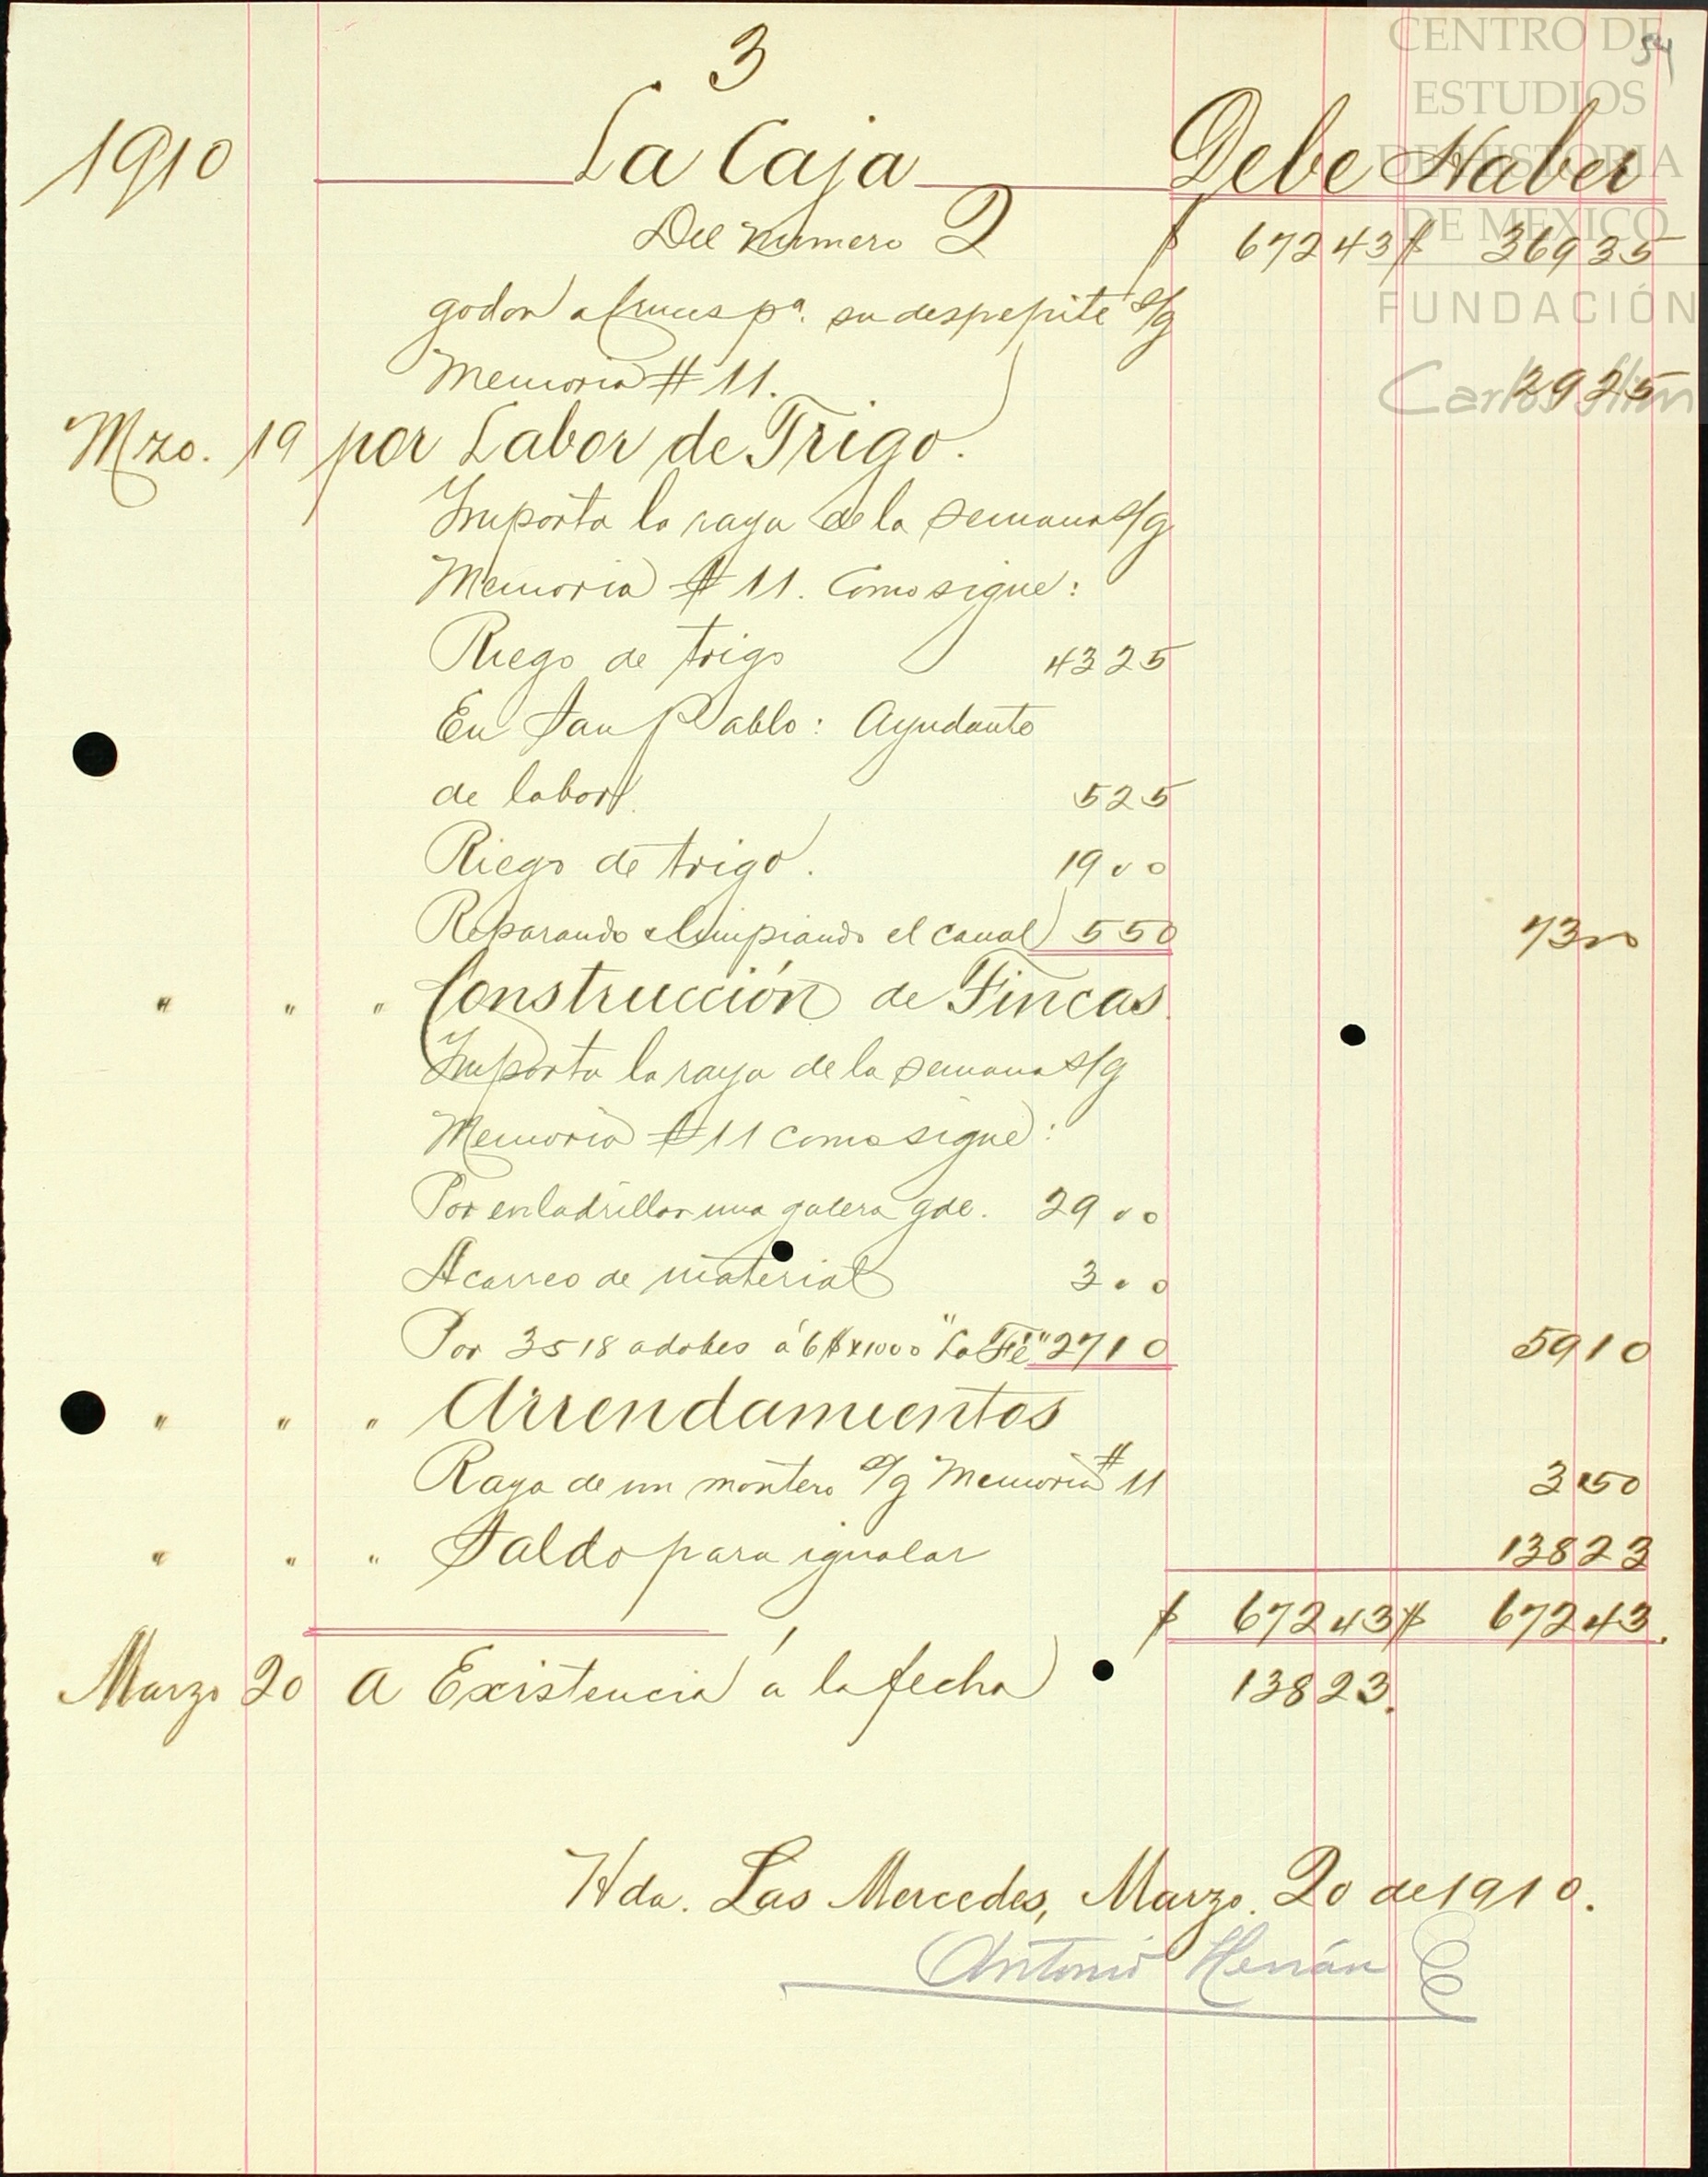 CENTRO DE
ESTUDIOS
DE HISTORIA
DE MEXICO
FUNDACIÓN
Carlos Slim
54
3
1910 La Caja Debe Haber
Del numero 2 $ 672 43 $ 369 35
godon a Cruces pa. su despepite s/g
Memoria # 11. 29 25
Mzo. 19 por Labor de Trigo.
Importa la raya de la semana s/g
Memoria # 11. Como sigue:
Riego de trigo 43 25
En San Pablo: Ayudante
de labor. 5 25
Riego de trigo. 19 00
Reparando & limpiando el canal 5 50 73 00
" " " Construcción de Fincas.
Importa la raya de la semana s/g
Memoria # 11 como sigue:
Por enladrillar una galera gde. 29 00
Acarreo de material 3 00
Por 3518 adobes á 6$ x 1000 "La Fé" 27 10 59 10
" " " Arrendamientos
Raya de un montero s/g Memoria # 11 3 50
" " " Saldo para igualar 138 23
$ 672 43 $ 672 43.
Marzo 20 A Existencia á la fecha 138 23.
Hda. Las Mercedes, Marzo. 20 de 1910.
Antonio Hernán